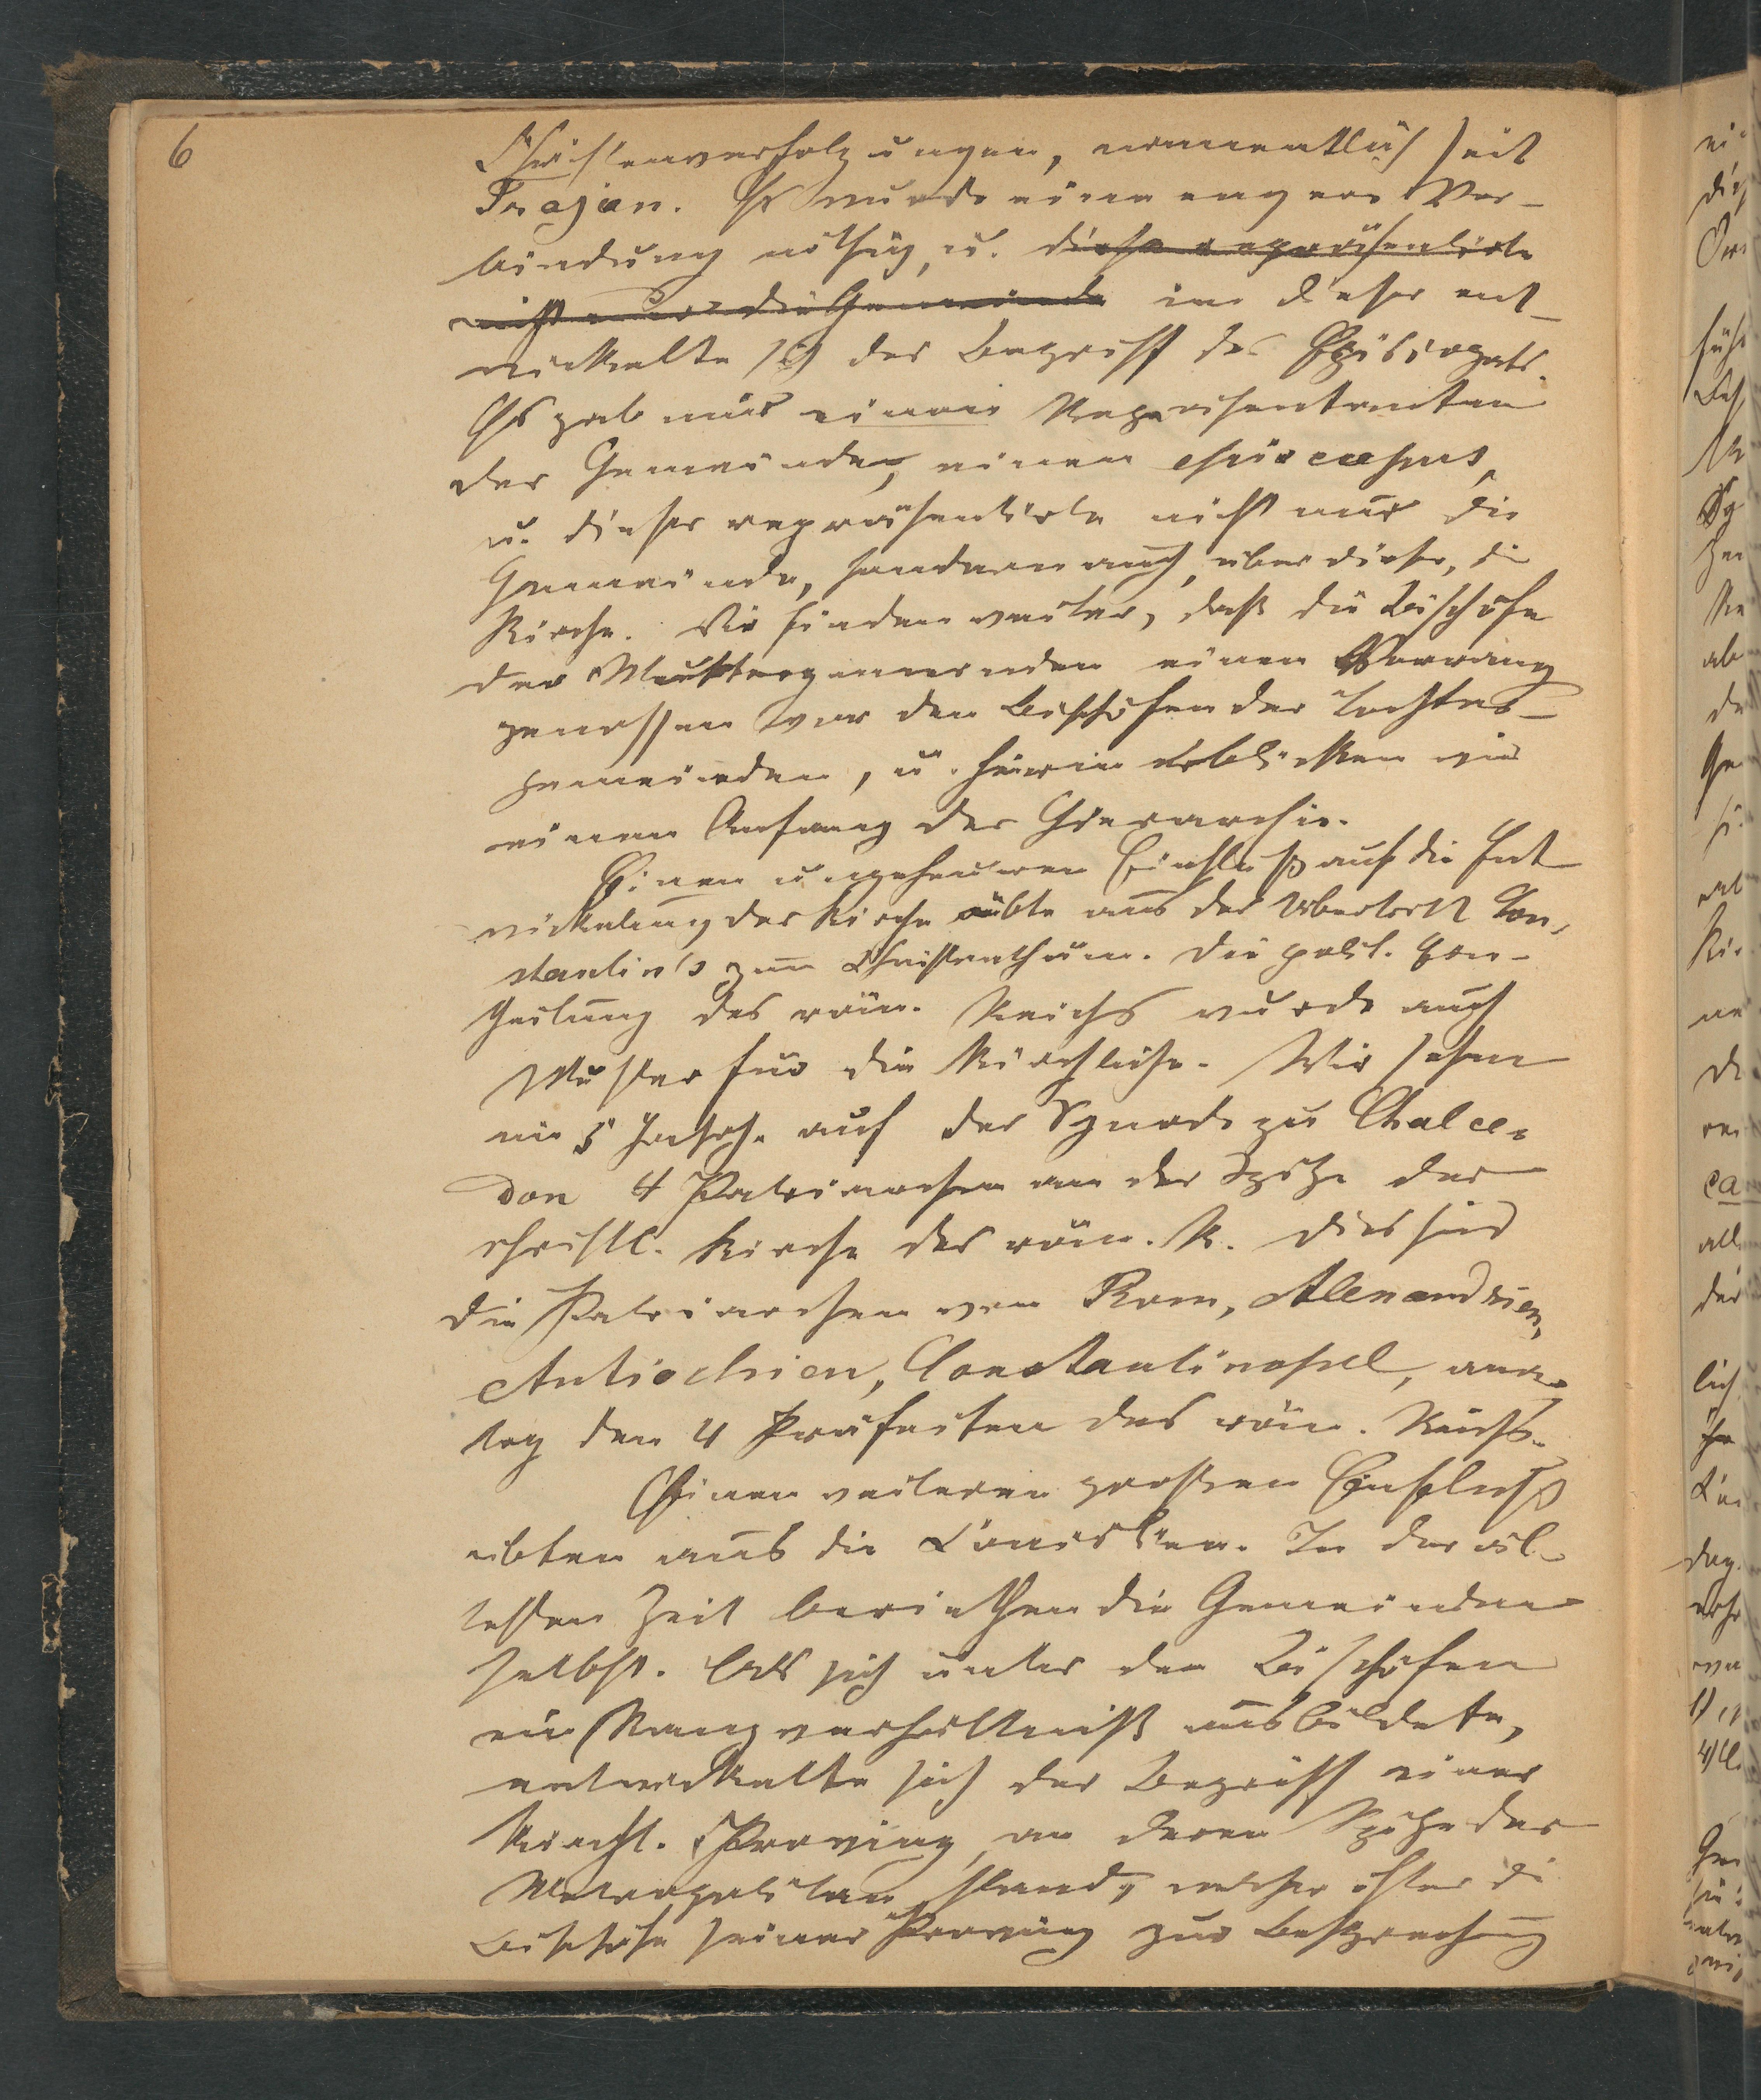 6
Christenverfolgungen, namentlich seit
Trajan. Es wurde eine engere Ver-
bindung nöthig, u. diese repräsentirte
nicht nur die Gemeinde in dieser ent-
wickelte sich der Begriff des Episcopats.
Es gab nur einen Repräsentanten
der Gemeinde, einen episcopus,
u. dieser repräsentirte nicht nur die
Gemeinde, sondern auch, über diese, die
Kirche. Wir finden weiter, daß die Bischöfe
der Muttergemeinden einen Vorrang
genossen vor den Bischöfen der Tochter-
gemeinden, u. hierin erblicken wir
einen Anfang der Hierarchie.
Einen ungeheuren Einfluß auf die Ent-
wickelung der Kirche übte aus der Übertritt Con-
stantin's zum Christenthum. Die polit. Ein-
theilung des röm. Reichs wurde auch
Muster für die Kirchliche. Wir sehen
im 5 Jahrh. auf der Synode zu Chalce-
don 4 Patriarchen an der Spitze der
christl. Kirche des röm. R. Dies sind
die Patriarchen von Rom, Alexandrien,
Antiochien, Constantinopel, ana-
log den 4 Präfecten des röm. Reichs.
Einen weiteren großen Einfluß
übten aus die Concilien. In der äl-
testen Zeit beriethen die Gemeinden
selbst. Als sich unter den Bischöfen
ein Rangverhältniß ausbildete,
entwickelte sich der Begriff einer
kirchl. Provinz, an deren Spitze der
Metropolitan stand, welcher öfter die
Bischöfe seiner Provinz zur Besprechung